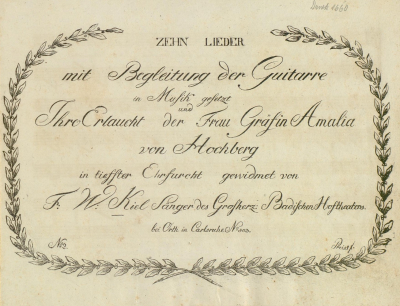 ZEHN LIEDER
mit Begleitung der Guitarre
in Musik gesetzt
und
Ihro Erlaucht der Frau Gräfin Amalia
von Hochberg
in tiefster Ehrfurcht gewidmet von
F. W. Kiel Sänger des Grosherz: Badischen Hoftheaters.
bei in Carlsruhe